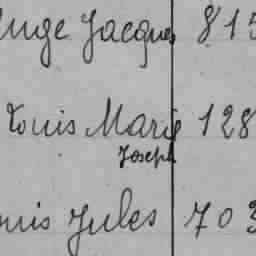 Ange Jacques 815
Louis Marie 128
Joseph
ouis Jules 703